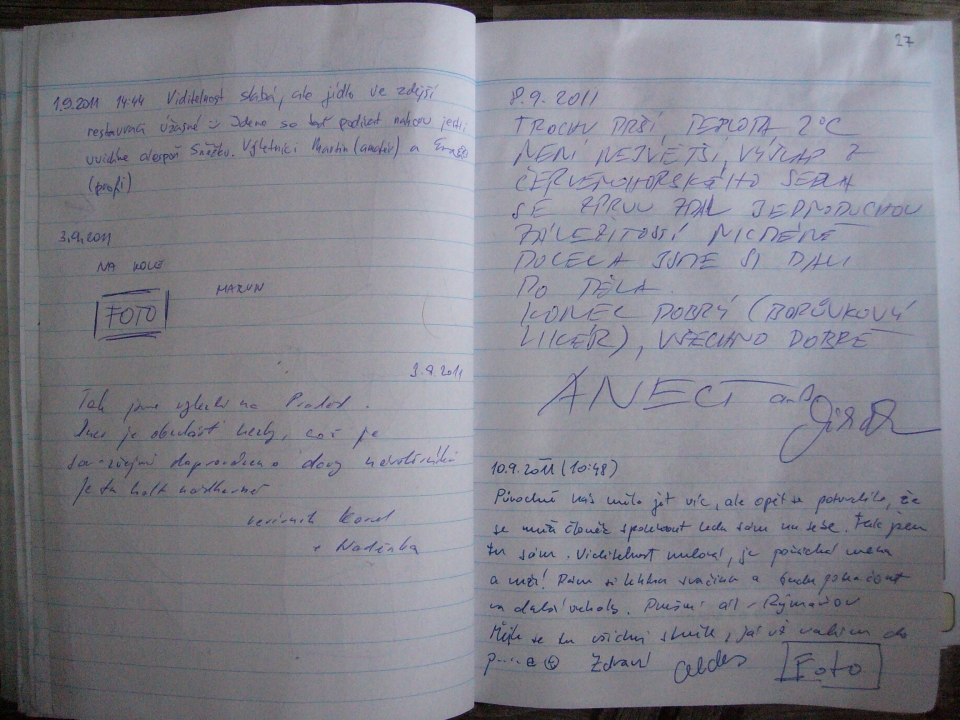 1.9.2011 14:44 Viditelnost slabá, ale jídlo ve zdejší
restauraci úžasné :-) Jdeme se teď podívat nahoru jestli
uvidíme alespoň Sněžku. Výletníci Martin (amatér) a
(profi)
3.9.2011
NA KOLE
FOTO
MARTIN
3.9.2011
Tak jsme vylezli na Praděd.
Dnes je obzvlášť hezky, což je
samozřejmě doprovázeno davy návštěvníků
Je tu holt nádherně
Karel
+ Naděnka
27
8.9.2011
TROCHU PRŠÍ, TEPLOTA 2°C
NENÍ NEJVĚTŠÍ, VÝŠLAP Z
ČERVENOHORSKÉHO SEDLA
SE ZPRVU ZDÁL JEDNODUCHOU
ZÁLEŽITOSTÍ NICMÉNĚ
DOCELA JSME SI DALI
DO TĚLA.
KONEC DOBRÝ (BORŮVKOVÝ
LIKÉR), VŠECHNO DOBRÉ
ANECT and
10.9.2011 (10:48)
Původně nás mělo jít víc, ale opět se potvrdilo, že
se musí člověk spolehnout leda sám na sebe. Tak jsem
tu sám. Viditelnost nulová, je
a mží! Dám si lehkou svačinu a budu pokračovat
na další vrcholy. Rýmařov
Mějte se tu všichni skvěle, já už valím do
p....e Zdraví
Foto